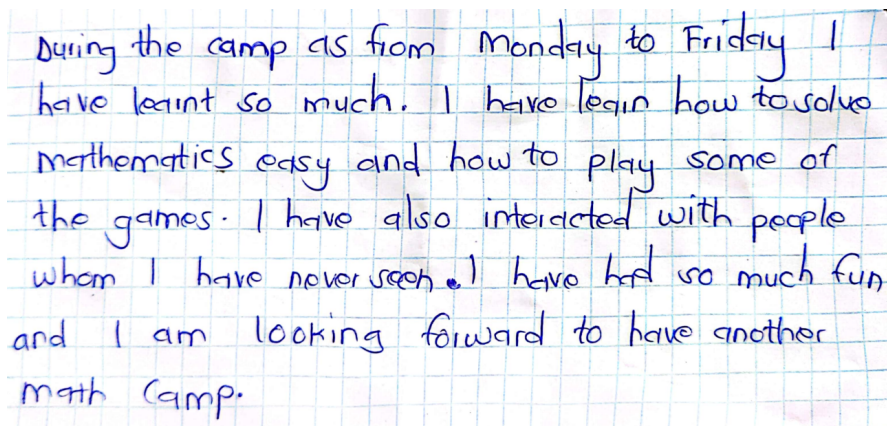 During the camp as from Monday to Friday I
have learnt so much. I have learn how to solve
mathematics easy and how to play some of
the games. I have also interacted with people
whom I have never seen. I have had so much fun
and I am looking forward to have another
math camp.